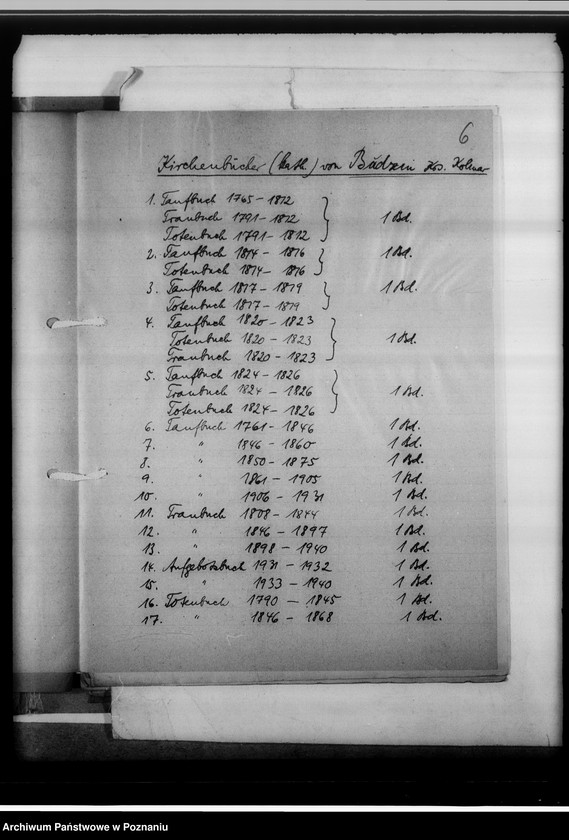 6
Kirchenbücher (kath.) von Budzin Krs. Kolmar
1. Taufbuch 1765 - 1812
Traubuch 1791 - 1812 1 Bd.
Totenbuch 1791 - 1812
2. Taufbuch 1814 - 1816 1 Bd.
Totenbuch 1814 - 1816
3. Taufbuch 1817 - 1819 1 Bd.
Totenbuch 1817 - 1819
4. Taufbuch 1820 - 1823
Totenbuch 1820 - 1823 1 Bd.
Traubuch 1820 - 1823
5. Taufbuch 1824 - 1826
Traubuch 1824 - 1826 1 Bd.
Totenbuch 1824 - 1826
6. Taufbuch 1761 - 1846 1 Bd.
7. " 1846 - 1860 1 Bd.
8. " 1850 - 1875 1 Bd.
9. " 1861 - 1905 1 Bd.
10. " 1906 - 1931 1 Bd.
11. Traubuch 1808 - 1844 1 Bd.
12. " 1846 - 1897 1 Bd.
13. " 1898 - 1940 1 Bd.
14. Aufgebotsbuch 1931 - 1932 1 Bd.
15. " 1933 - 1940 1 Bd.
16. Totenbuch 1790 - 1845 1 Bd.
17. " 1846 - 1868 1 Bd.
Archiwum Państwowe w Poznaniu